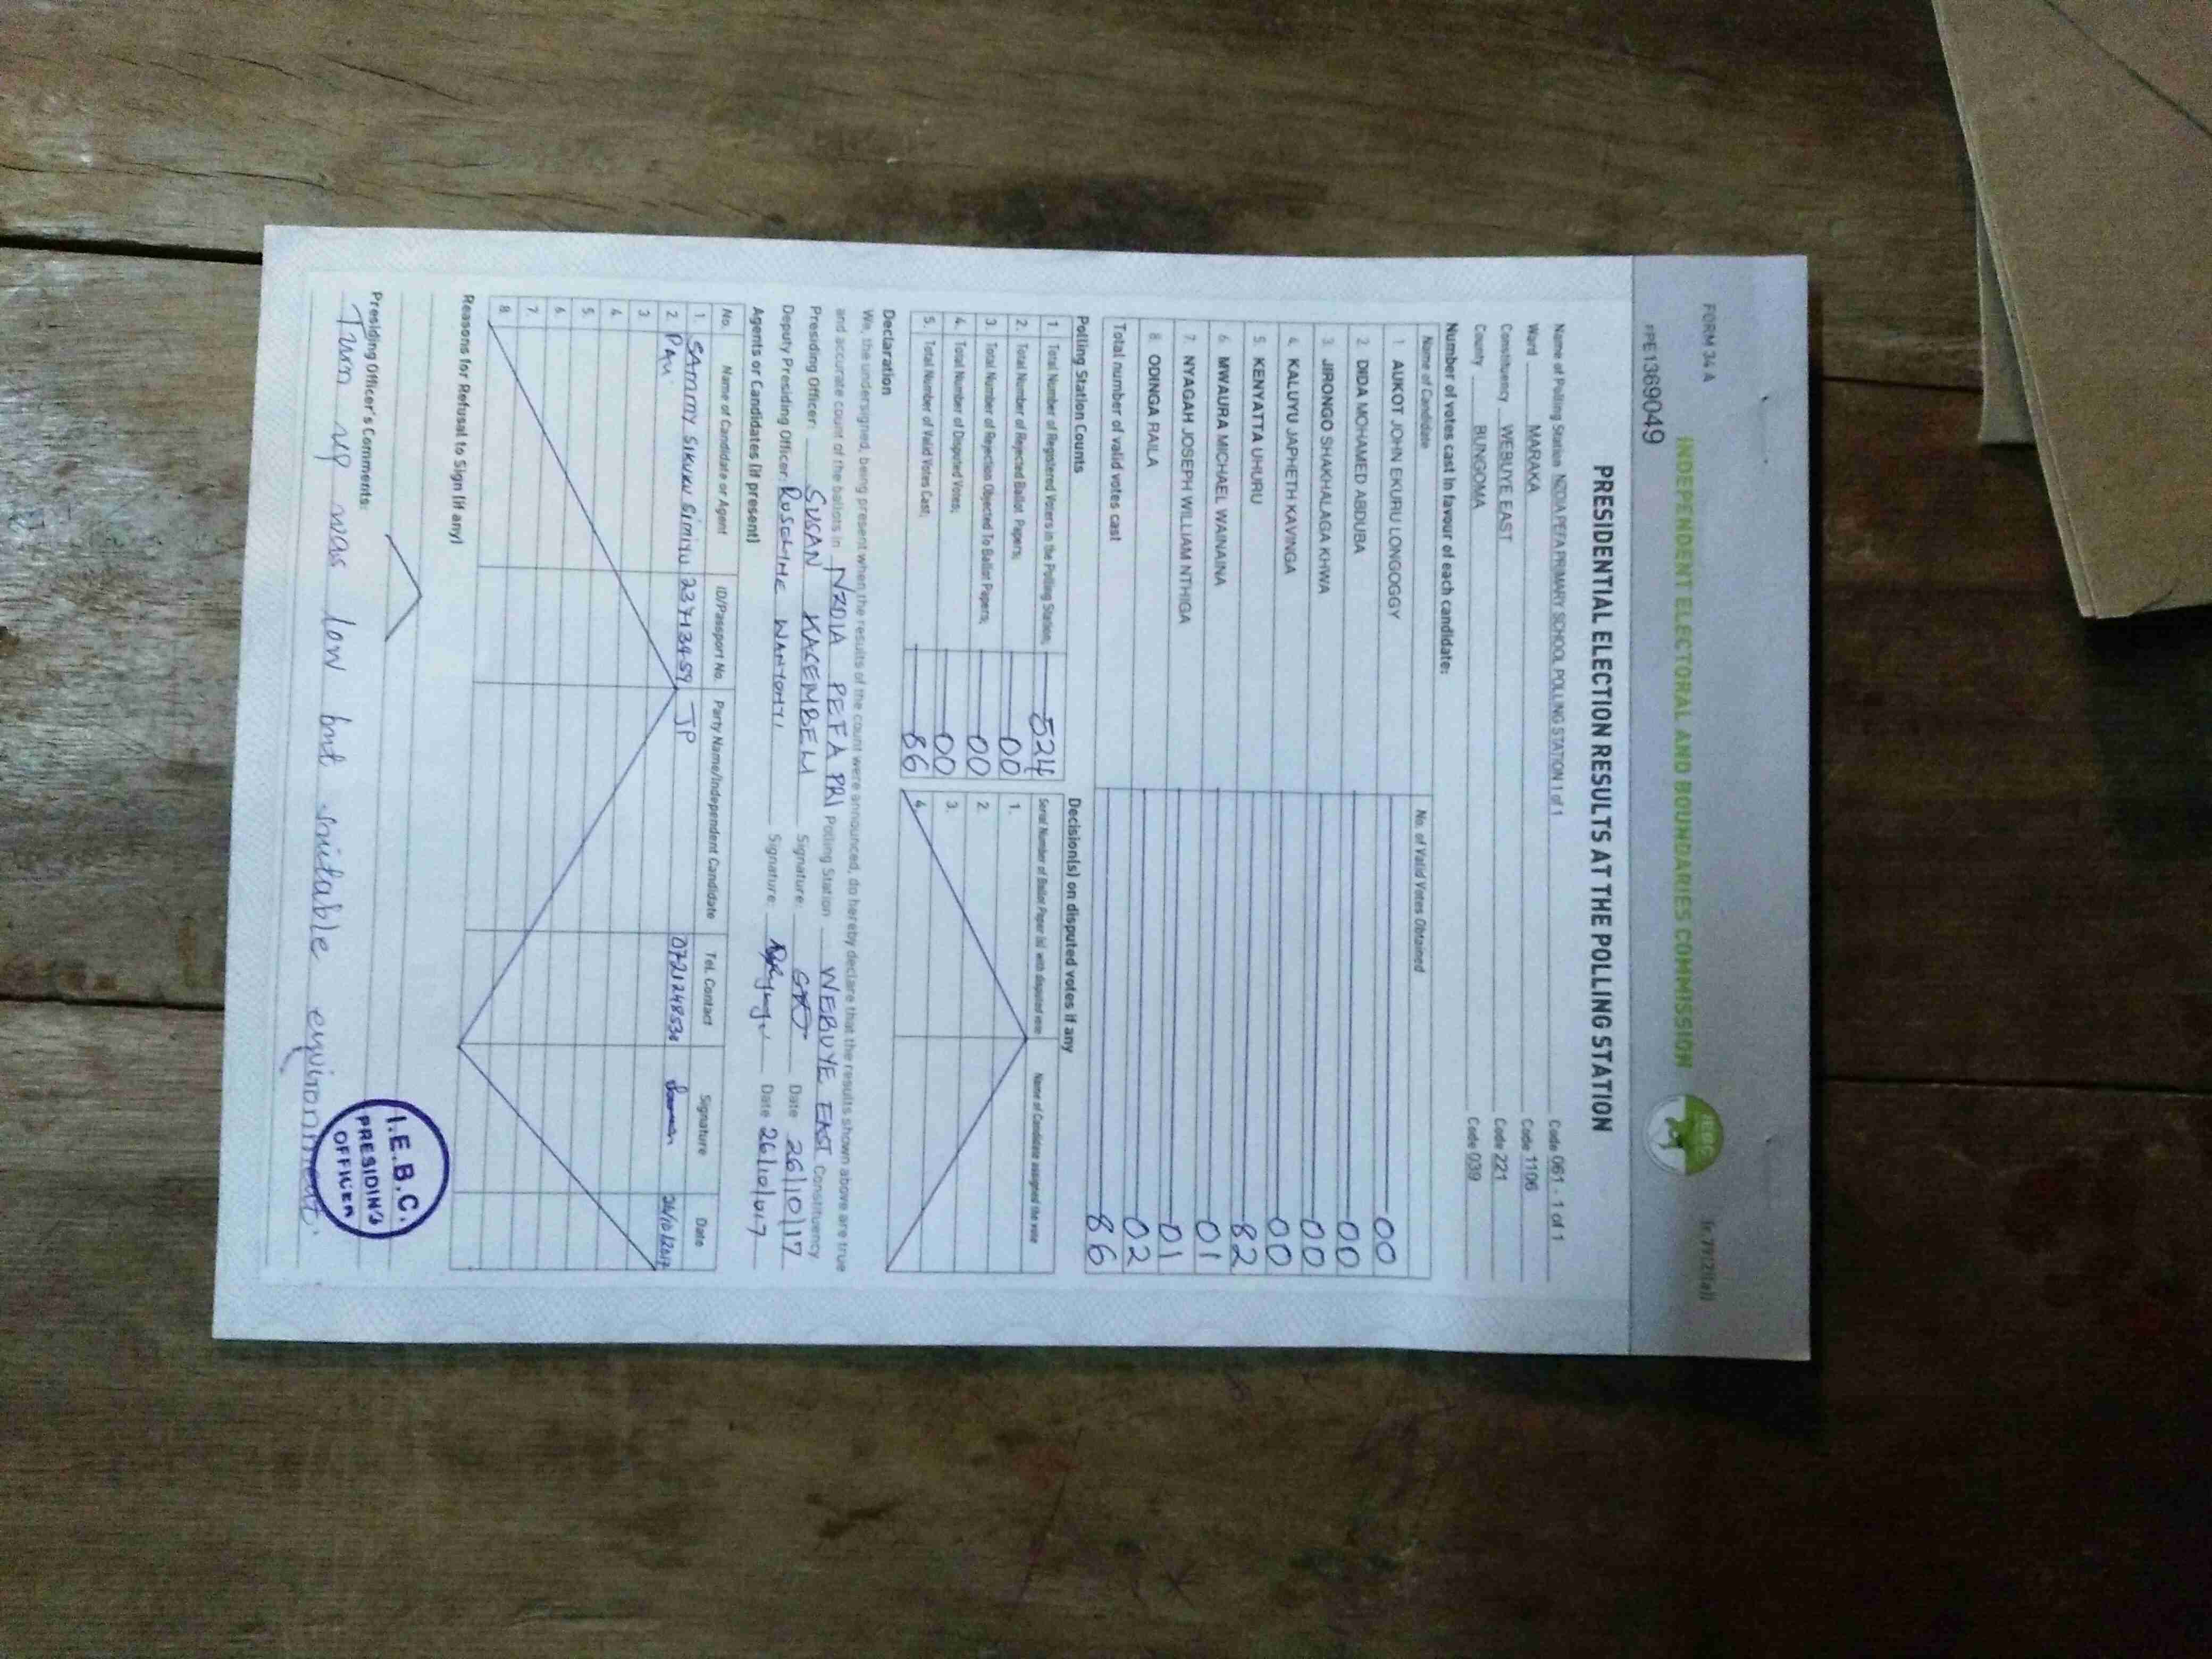 FORM 34 A
INDEPENDENT ELECTORAL AND BOUNDARIES COMMISSION
IEBC
PPE1369049
PRESIDENTIAL ELECTION RESULTS AT THE POLLING STATION
Name of Polling Station NZOIA PEFA PRIMARY SCHOOL POLLING STATION 1 of 1 Code 061 - 1 of 1
Ward MARAKA Code 1106
Constituency WEBUYE EAST Code 221
County BUNGOMA Code 039
Number of votes cast in favour of each candidate:
Name of Candidate No. of Valid Votes Obtained
1. AUKOT JOHN EKURU LONGOGGY 00
2. DIDA MOHAMED ABDUBA 00
3. JIRONGO SHAKHALAGA KHWA 00
4. KALUYU JAPHETH KAVINGA 00
5. KENYATTA UHURU 82
6. MWAURA MICHAEL WAINAINA 01
7. NYAGAH JOSEPH WILLIAM NTHIGA 01
8. ODINGA RAILA 02
Total number of valid votes cast 86
Polling Station Counts
1. Total Number of Registered Voters in the Polling Station; 524
2. Total Number of Rejected Ballot Papers; 00
3. Total Number of Rejection Objected To Ballot Papers; 00
4. Total Number of Disputed Votes; 00
5. Total Number of Valid Votes Cast; 86
Decision(s) on disputed votes if any
Serial Number of Ballot Paper (s) with disputed vote Name of Candidate assigned the vote
1.
2.
3.
4.
Declaration
We, the undersigned, being present when the results of the count were announced, do hereby declare that the results shown above are true
and accurate count of the ballots in NZOIA PEFA PRI Polling Station WEBUYE EAST Constituency.
Presiding Officer: SUSAN Signature: Date 26/10/17
Deputy Presiding Officer: Signature: Date 26/10/017
Agents or Candidates (if present)
No. Name of Candidate or Agent ID/Passport No. Party Name/Independent Candidate Tel. Contact Signature Date
1. SAMMY SIKUKU SIMIYU 23713459 JP 0721248530 26/10/2017
2.
3.
4.
5.
6.
7.
8.
Reasons for Refusal to Sign (if any)
Presiding Officer's Comments:
Turn up was low but suitable environment.
I.E.B.C.
PRESIDING
OFFICER